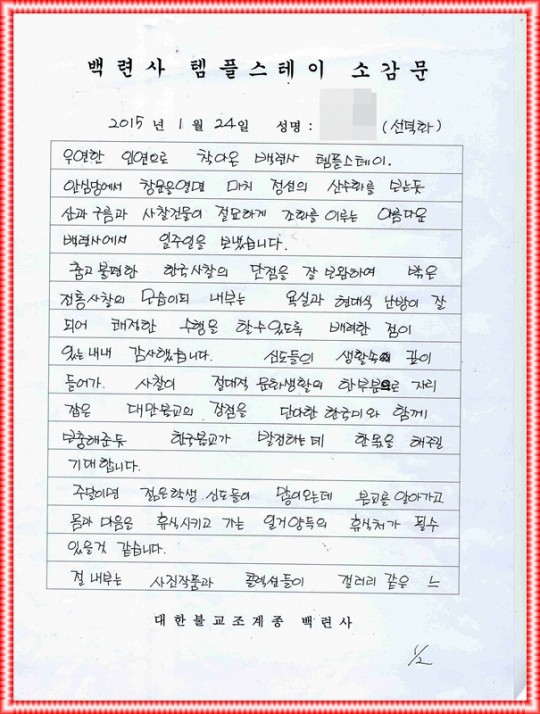 백련사 템플스테이 소감문
2015년 1월 24일 성명: (선덕화)
우연한 인연으로 찾아온 백련사 템플스테이.
안심당에서 창문을열면 마치 정선의 산수화를 보는듯
산과 구름과 사찰건물이 절묘하게 조화를 이루는 아름다운
백련사에서 일주일을 보냈습니다.
춥고 불편한 한국사찰의 단점을 잘 보완하여 밖은
전통사찰의 모습이되 내부는 욕실과 현대식 난방이 잘
되어 쾌적한 수행을 할수있도록 배려한 점이
있는내내 감사했습니다. 신도들의 생활속에 깊이
들어가. 사찰이 절대적 문화생활의 한부분으로 자리
잡은 대만불교의 장점을 단아한 한국미와 함께
보충해준듯 한국불교가 발전하는데 한몫을 해주길
기대합니다.
주말이면 젊은학생.신도들이 많이오는데 불교를 알아가고
몸과 마음을 휴식시키고 가는 일거양득의 휴식처가 될수
있을것 같습니다.
절 내부는 사진작품과 콜렉션들이 갤러리 같은 느
대한불교조계종 백련사
1/2